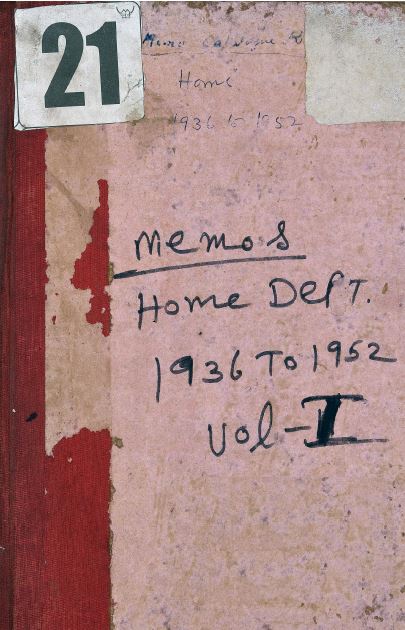 21
Memo Catalogue
Home
1936 to 1952
Memos
Home Dept.
1936 To 1952
Vol-I